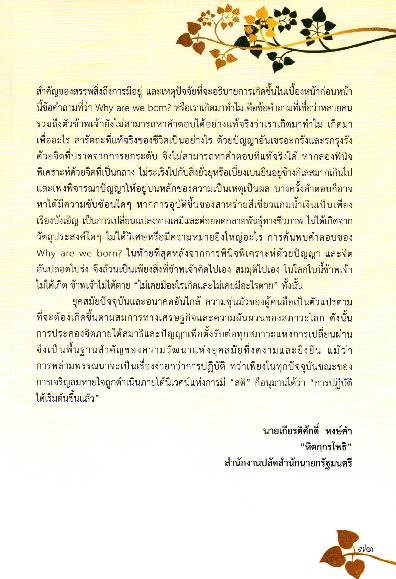 สำคัญของสรรพสิ่งถึงการมีอยู่ และเหตุปัจจัยที่จะอธิบายการเกิดขึ้นในเบื้องหน้าก่อนหน้า
นี้ข้อคำถามที่ว่า Why are we born? หรือเราเกิดมาทำไม คือข้อคำถามที่เชื่อว่าหลายคน
รวมถึงตัวข้าพเจ้ายังไม่สามารถหาคำตอบได้อย่างแท้จริงว่าเราเกิดมาทำไม เกิดมา
เพื่ออะไร สารัตถะที่แท้จริงของชีวิตเป็นอย่างไร ด้วยปัญญาอันเขรอะกรังและรกรุงรัง
ด้วยจิตที่ปราศจากการยกระดับ จึงไม่สามารถหาคำตอบที่แท้จริงได้ หากลองพินิจ
พิเคราะห์ด้วยจิตที่เป็นกลาง ไม่ระเริงไปกับสิ่งยั่วยุหรือเบี่ยงเบนยินอยู่ข้างกิเลสมากเกินไป
และเพ่งพิจารณาปัญญาให้อยู่บนหลักของความเป็นเหตุเป็นผล บางครั้งคำตอบก็อาจ
หาได้มีความซับซ้อนใดๆ หากการอุบัติขึ้นของสาหร่ายสีเขียวแกมน้ำเงินเป็นเพียง
เรื่องบังเอิญ เป็นการเปลี่ยนแปลงทางเคมีและต่อยอดกลายพันธุ์ทางชีวภาพ ไม่ได้เกิดจาก
วัตถุประสงค์ใดๆ ไม่ได้วิเศษหรือมีความหมายยิ่งใหญ่อะไร การค้นพบคำตอบของ
Why are we born? ในท้ายที่สุดหลังจากการพินิจพิเคราะห์ด้วยปัญญา และจิต
อันปลอดโปร่ง จึงล้วนเป็นเพียงสิ่งที่ข้าพเจ้าคิดไปเอง สมมุติไปเอง ในโลกใบนี้ข้าพเจ้า
ไม่ได้เกิด ข้าพเจ้าไม่ได้ตาย “ไม่เคยมีอะไรเกิดและไม่เคยมีอะไรตาย” ทั้งนั้น
ยุคสมัยปัจจุบันและอนาคตอันใกล้ ความขุ่นมัวของผู้คนถือเป็นตัวแปรตาม
ที่จะต้องเกิดขึ้นตามสมการทางเศรษฐกิจและความผันผวนของสภาวะโลก ดังนั้น
การประคองจิตภายใต้สมาธิและปัญญาเพื่อตั้งรับต่อทุกสภาวะแห่งการเปลี่ยนผ่าน
จึงเป็นพื้นฐานสำคัญของความวัฒนาแห่งยุคสมัยที่งดงามและยั่งยืน แม้ว่า
การพล่ามพรรณนาจะเป็นเรื่องง่ายกว่าการปฏิบัติ ทว่าเพียงในทุกปัจจุบันขณะของ
การเจริญลมหายใจถูกดำเนินภายใต้นิเวศน์แห่งการมี “สติ” ก็อนุมานได้ว่า “การปฏิบัติ
ได้เริ่มต้นขึ้นแล้ว”
นายเกียรติศักดิ์ หงษ์คำ
“หิตกุกรโพธิ”
สำนักงานปลัดสำนักนายกรัฐมนตรี